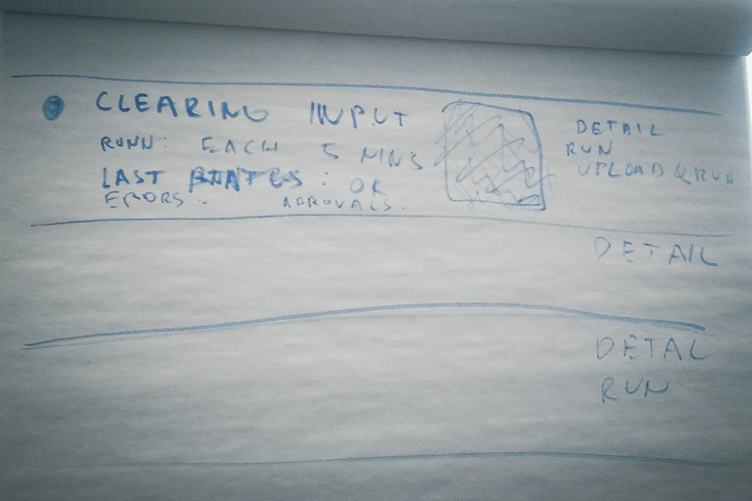 CLEARING INPUT
RUNN: EACH 5 MINS
LAST : OK
ERRORS: APROVALS:
DETAIL
RUN
UPLOAD & RUN
DETAIL
DETAL
RUN